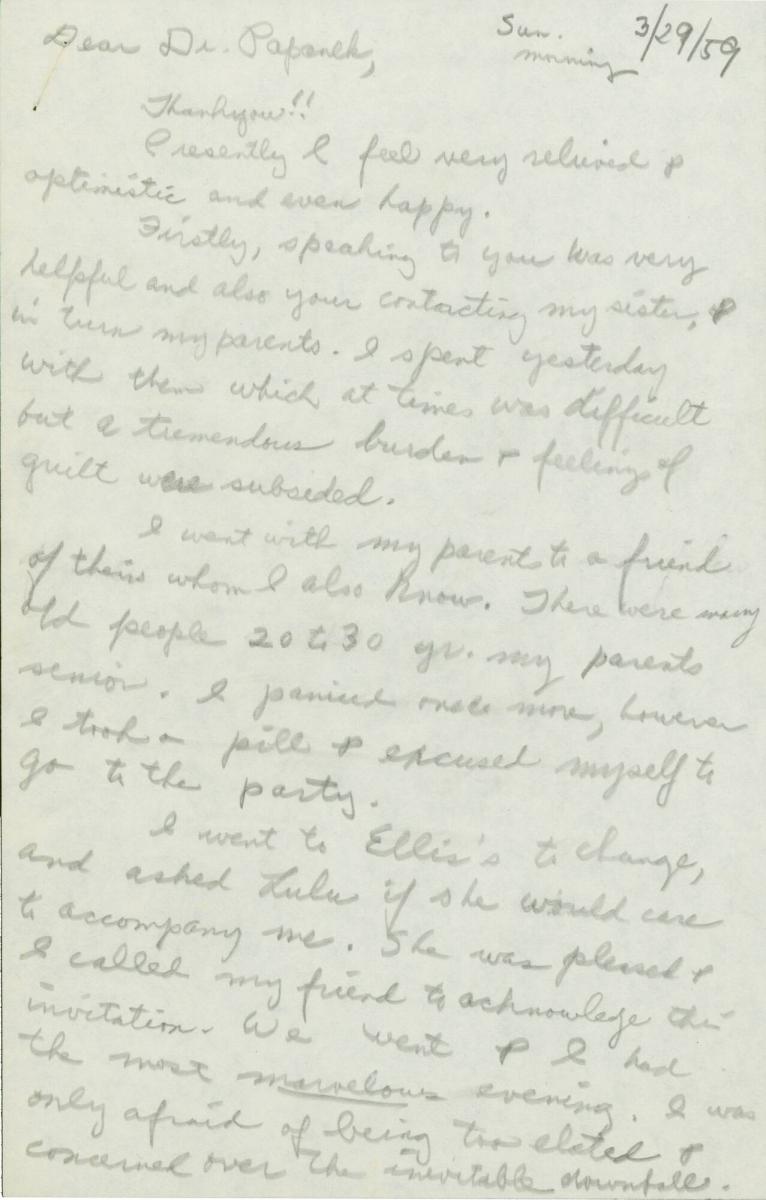 Sun. 3/29/59
morning
Dear Dr. Papanek,
Thankyou!!
Presently I feel very relieved &
optimistic and even happy.
Firstly, speaking to you was very
helpful and also your contacting my sister, &
in turn my parents. I spent yesterday
with them which at times was difficult
but a tremendous burden & feelings of
guilt were subsided.
I went with my parents to a friend
of theirs whom I also know. There were many
old people 20 to 30 yr. my parents
senior. I paniced once more, however
I took a pill & excused myself to
go to the party.
I went to Ellis's to change,
and asked Lulu if she would care
to accompany me. She was pleased &
I called my friend to acknowlege this
invitation. We went & I had
the most marvelous evening. I was
only afraid of being too elated &
concerned over the inevitable downfall.